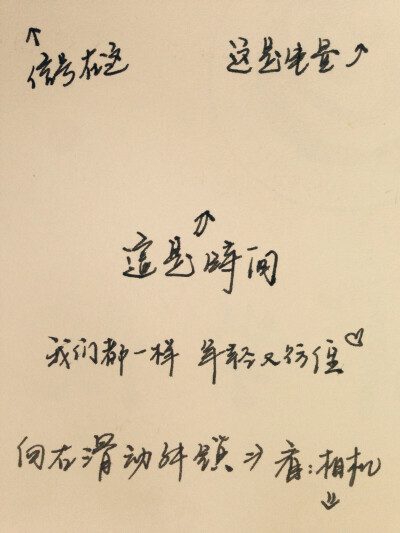 信号在这
这是电量
這是時间
我们都一样 年轻又彷徨
向右滑动解锁 看:相机